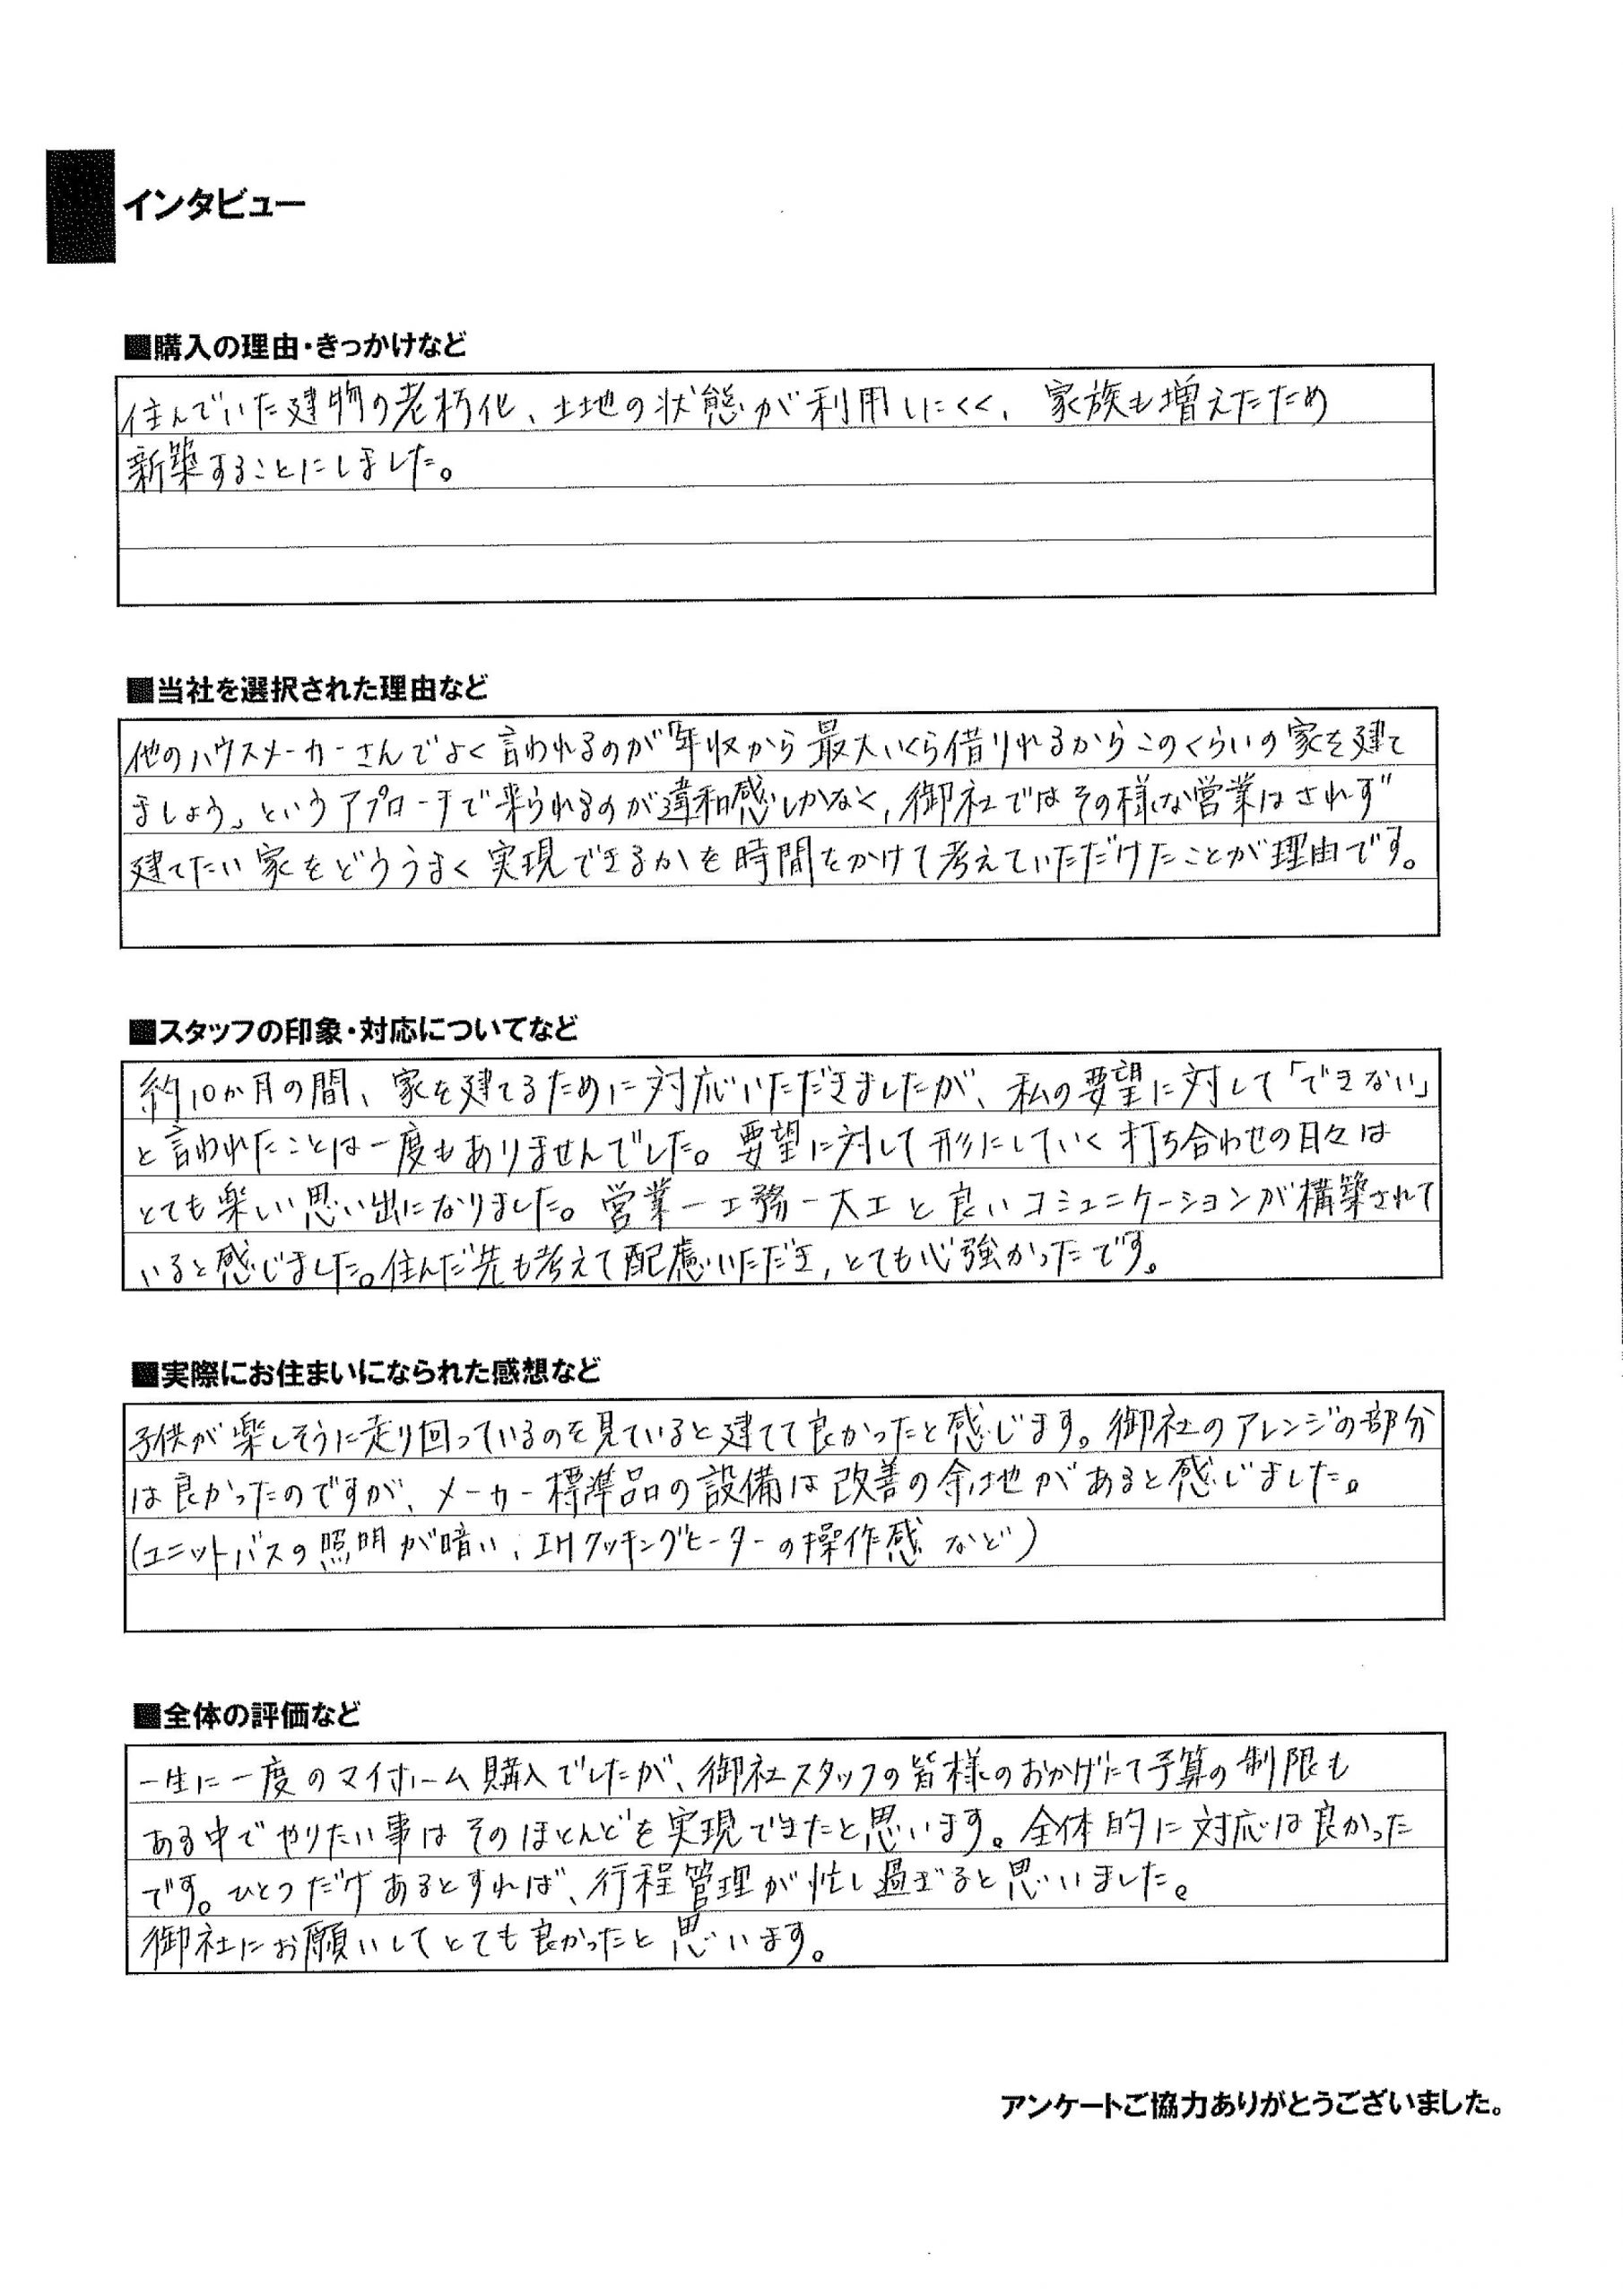 インタビュー
■購入の理由・きっかけなど
住んでいた建物の老朽化、土地の状態が利用しにくく、家族も増えたため
新築することにしました。
■当社を選択された理由など
他のハウスメーカーさんでよく言われるのが「年収から最大いくら借りれるからこのくらいの家を建て
ましょう」というアプローチで来られるのが違和感しかなく、御社ではその様な営業はされず
建てたい家をどううまく実現できるかを時間をかけて考えていただけたことが理由です。
■スタッフの印象・対応についてなど
約10か月の間、家を建てるために対応いただきましたが、私の要望に対して「できない」
と言われたことは一度もありませんでした。要望に対して形にしていく打ち合わせの日々は
とても楽しい思い出になりました。営業ー工務ー大工と良いコミュニケーションが構築されて
いると感じました。住んだ先も考えて配慮いただき、とても心強かったです。
■実際にお住まいになられた感想など
子供が楽しそうに走り回っているのを見ていると建てて良かったと感じます。御社のアレンジの部分
は良かったのですが、メーカー標準品の設備は改善の余地があると感じました。
(ユニットバスの照明が暗い、IHクッキングヒーターの操作感 など)
■全体の評価など
一生に一度のマイホーム購入でしたが、御社スタッフの皆様のおかげにて予算の制限も
ある中でやりたい事はそのほとんどを実現できたと思います。全体的に対応は良かった
です。ひとつだけあるとすれば、行程管理が忙し過ぎると思いました。
御社にお願いしてとても良かったと思います。
アンケートご協力ありがとうございました。